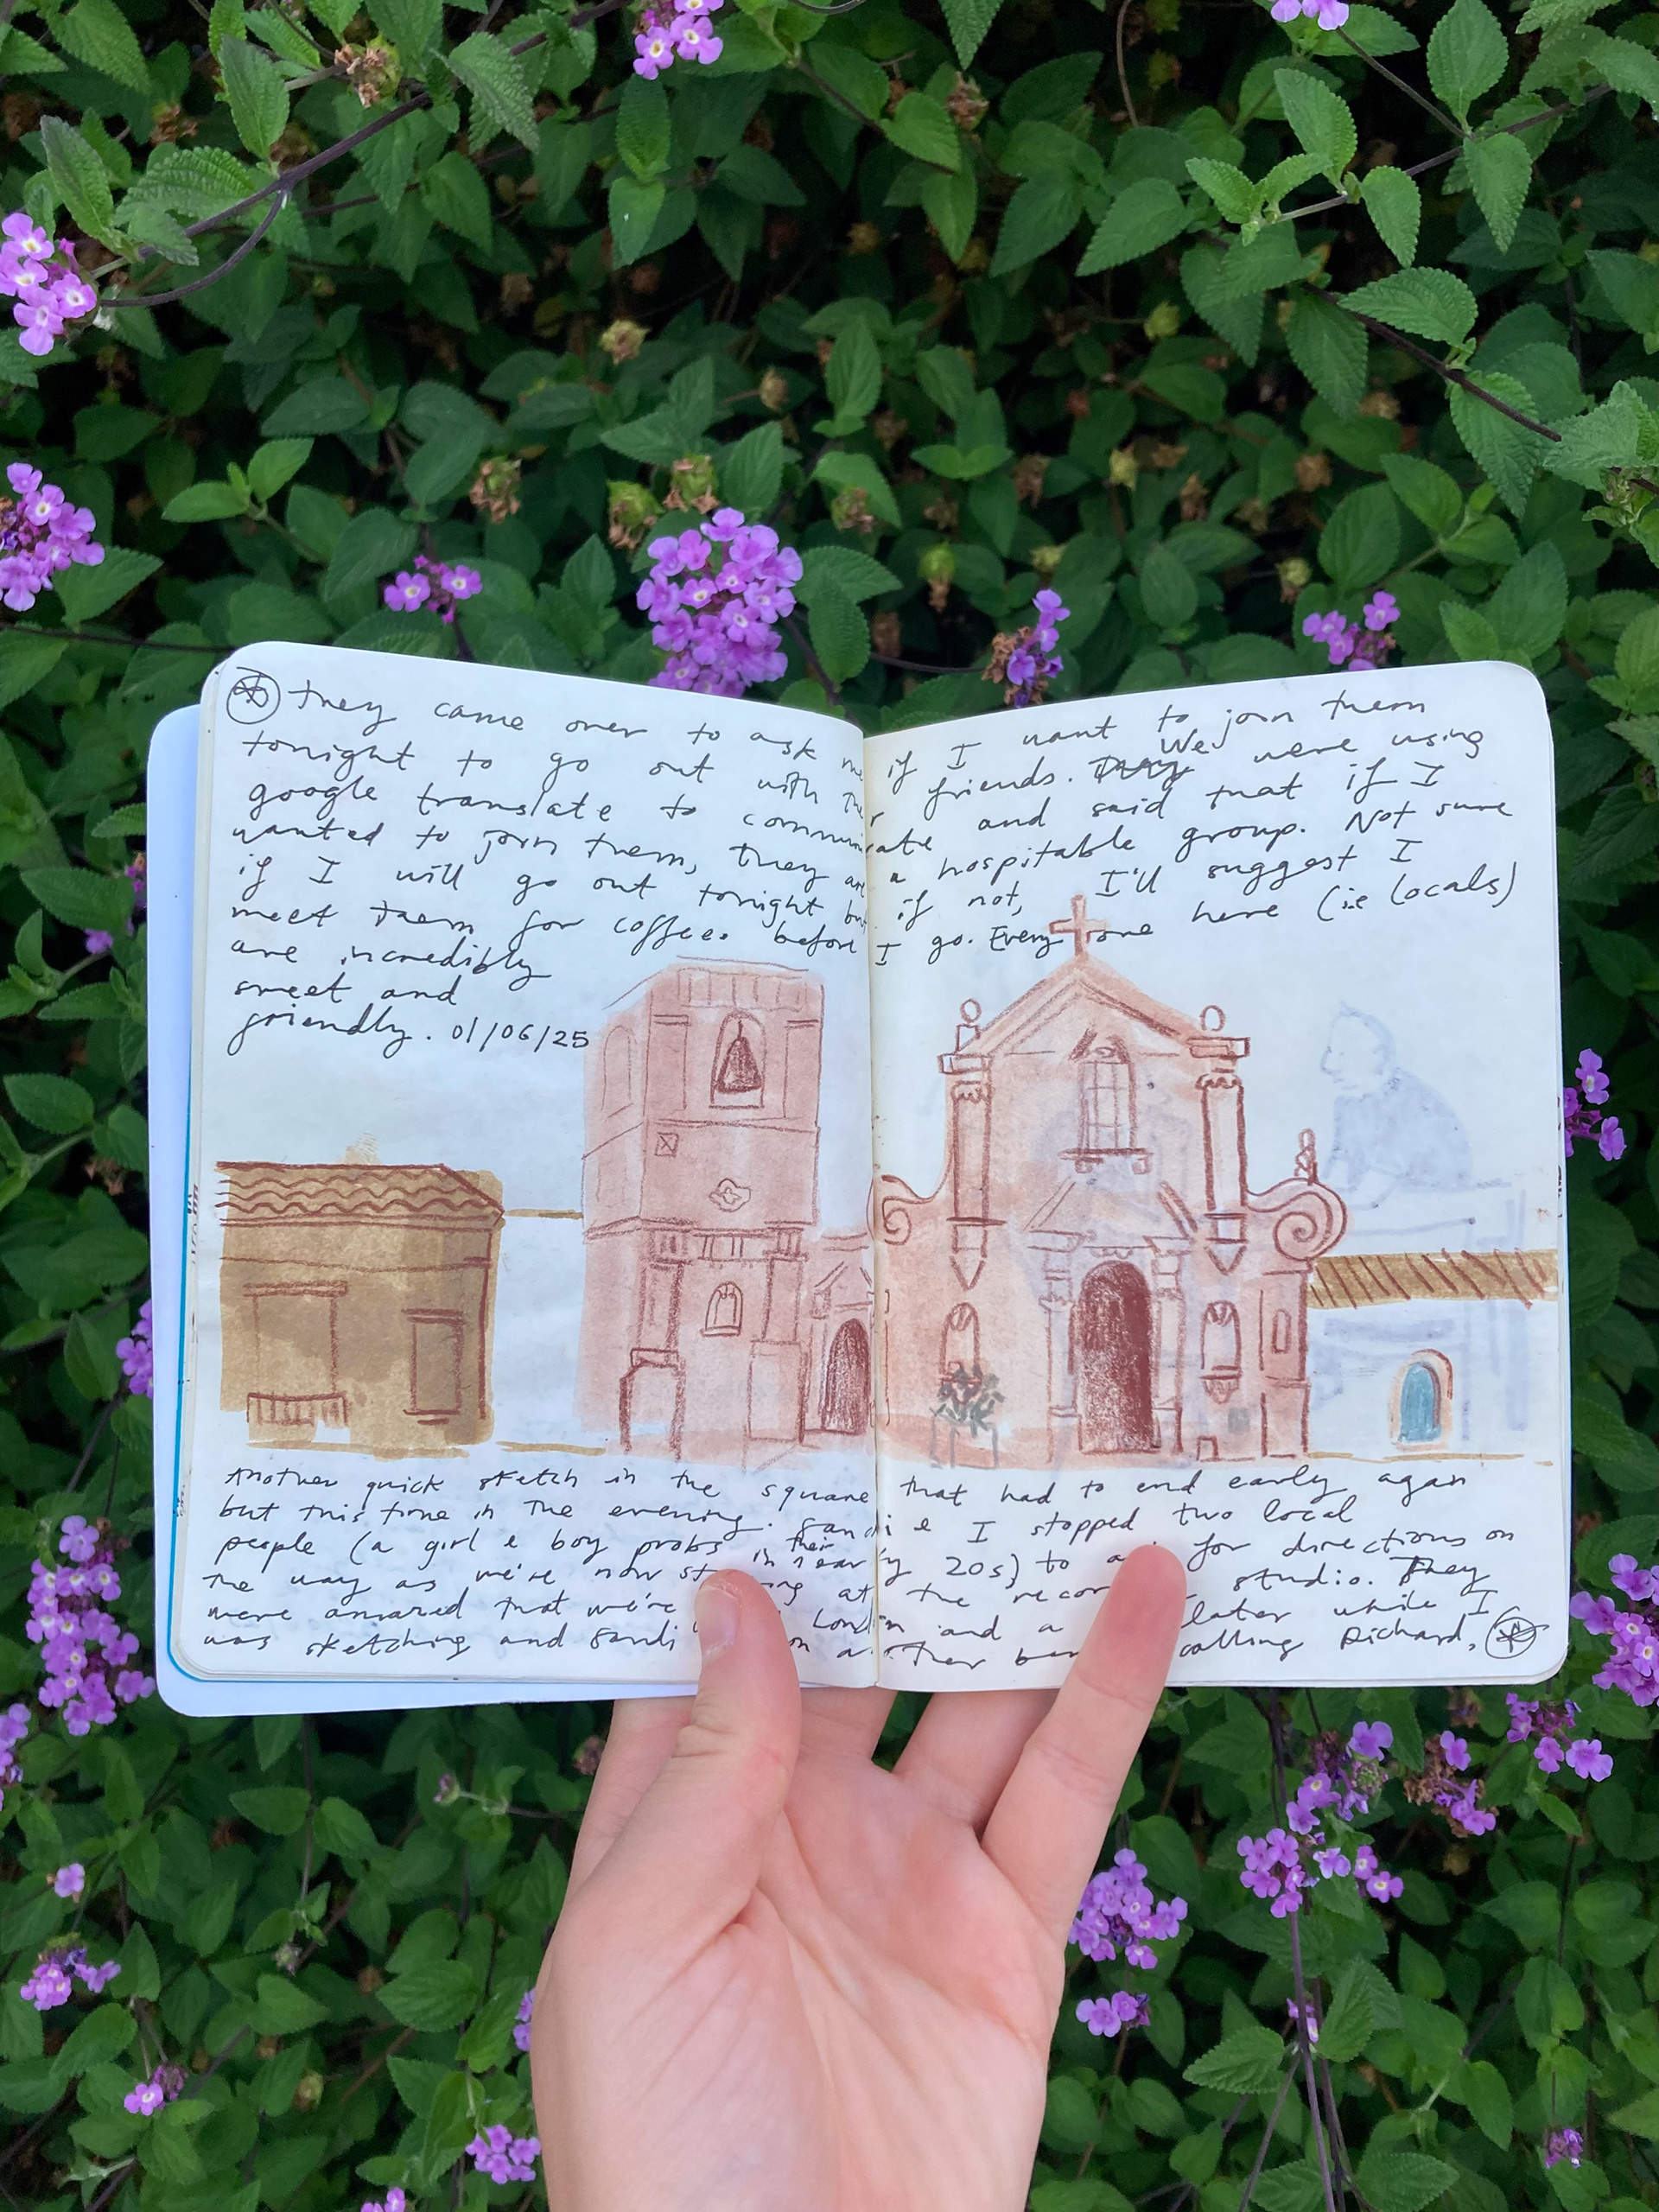 They came over to ask me if I want to join them
tonight to go out with their friends. They We were using
google translate to communicate and said that if I
wanted to join them, they are a hospitable group. Not sure
if I will go out tonight but if not, I'll suggest I
meet them for coffee. before I go. Everyone here (ie locals)
are incredibly
sweet and
friendly. 01/06/25
Another quick sketch in the square that had to end early again
but this time in the evening. Sandi & I stopped two local
people (a girl & boy probs in their early 20s) to for directions on
the way as we're now at the studio. They
were amazed that we're London and a later while I
was sketching and Sandi on another calling Richard,